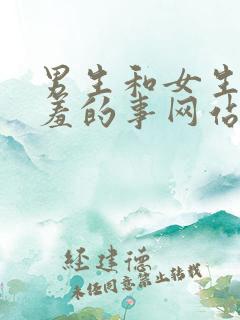 男生和女生
羞的事网站
经建德
未经同意禁止转载